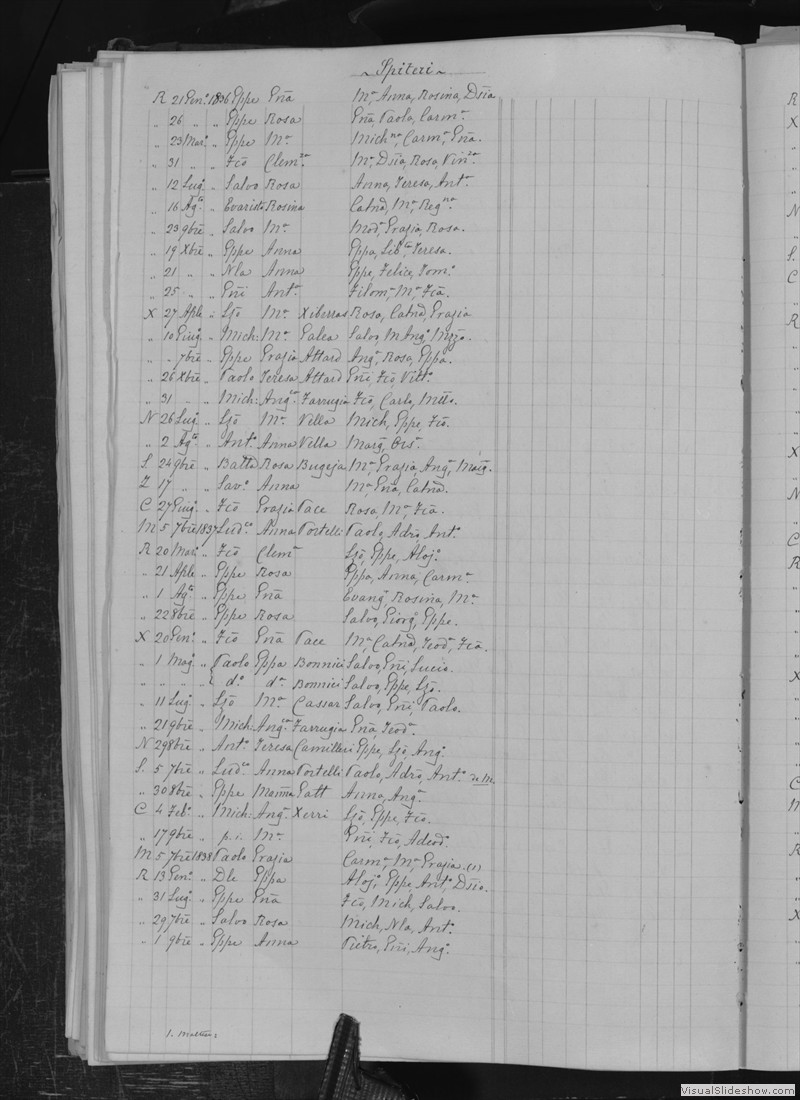 ~ Spiteri ~
R 21 Gen.º 1836 Eppe Gña Mª Anna, Rosina, Dsia
„ 26 „ „ Eppe Rosa Gña, Paolo, Carmª
„ 23 Mar.º „ Eppe Mª Michna, Carmª, Gña.
„ 31 „ „ Fcõ Clemza Mª Dsia, Rosa, Vinza
„ 12 Lug.º „ Salvo Rosa Anna, Teresa, Antª
„ 16 Ag.to „ Evarista Rosina Catnã, Mª, Regna
„ 23 9bre „ Salvo Mª Modª, Grazia, Rosa.
„ 19 Xbre „ Eppe Anna Eppa, Libta, Teresa.
„ 21 „ „ Nla Anna Eppe, Felice, Tomº
„ 25 „ „ Gni Antª Filomª, Mª, Fcã.
X 27 Aple „ Ljõ Mª Xiberras Rosa, Catnã, Grazia
„ 10 Giug.º „ Mich: Mª Galea Salvo, M Angª
„ „ 7bre „ Eppe Grazia Attard Angª, Rosa, Eppa.
„ 26 Xbre „ Paolo Teresa Attard Gni, Fcõ, Vittº
„ 31 „ „ Mich: Angca Farrugia Fcõ, Carlo, Mttõ.
N 26 Lug.º „ Ljõ Mª Vella Mich, Eppe, Fcõ.
„ 2 Ag.to „ Antº Anna Vella Marg, Orsª
S 24 9bre „ Batta Rosa Bugeja Mª, Grazia, Angª, Marg.
Z 17 „ „ Savº Anna Mª Gña, Catnã.
C 27 Giug.º „ Fcõ Grazia Pace Rosa, Mª, Fcã.
M 5 7bre 1837 Ludco Anna Portelli Paolo, Adrõ, Antº
R 20 Mar.º „ Fcõ Clemª Ljõ, Eppe, Alojº
„ 21 Aple „ Eppe Rosa Eppa, Anna, Carmª
„ 1 Ag.to „ Eppe Gña Evangª, Rosina, Mª
„ 22 8bre „ Eppe Rosa Salvo, Giorgº, Eppe.
X 20 Gen.º „ Fcõ Gña Pace Mª, Catnã, Teodª, Fcã.
„ 1 Mag.º „ Paolo Eppa Bonnici Salvo, Gni, Lucio.
„ „ „ „ dº dª Bonnici Salvo, Eppe, Ljõ.
„ 11 Lug.º „ Ljõ Mª Cassar Salvo, Gni, Paolo.
„ 21 9bre „ Mich: Angca Farrugia Gña, Teodª
N 29 8bre „ Antº Teresa Camilleri Eppe, Ljõ, Angº
S. 5 7bre „ Ludco Anna Portelli Paolo, Adrõ, Antº in M.
„ 30 8bre „ Eppe Marina Gatt Anna, Angª
C 4 Feb.º „ Mich: Angª Xerri Ljõ, Eppe, Fcõ.
„ 17 9bre „ p.i. Mª Gni, Fcõ, Adeodº
M 5 7bre 1838 Paolo Grazia Carmª, Mª, Grazia. (1)
R 13 Gen.º „ Dle Eppa Alojº, Eppe, Antº, Dsiõ.
„ 31 Lug.º „ Eppe Gña Fcõ, Mich, Salvo.
„ 29 7bre „ Salvo Rosa Mich, Nla, Antº
„ 1 9bre „ Eppe Anna Pietro, Gni, Angº
VisualSlideshow.com